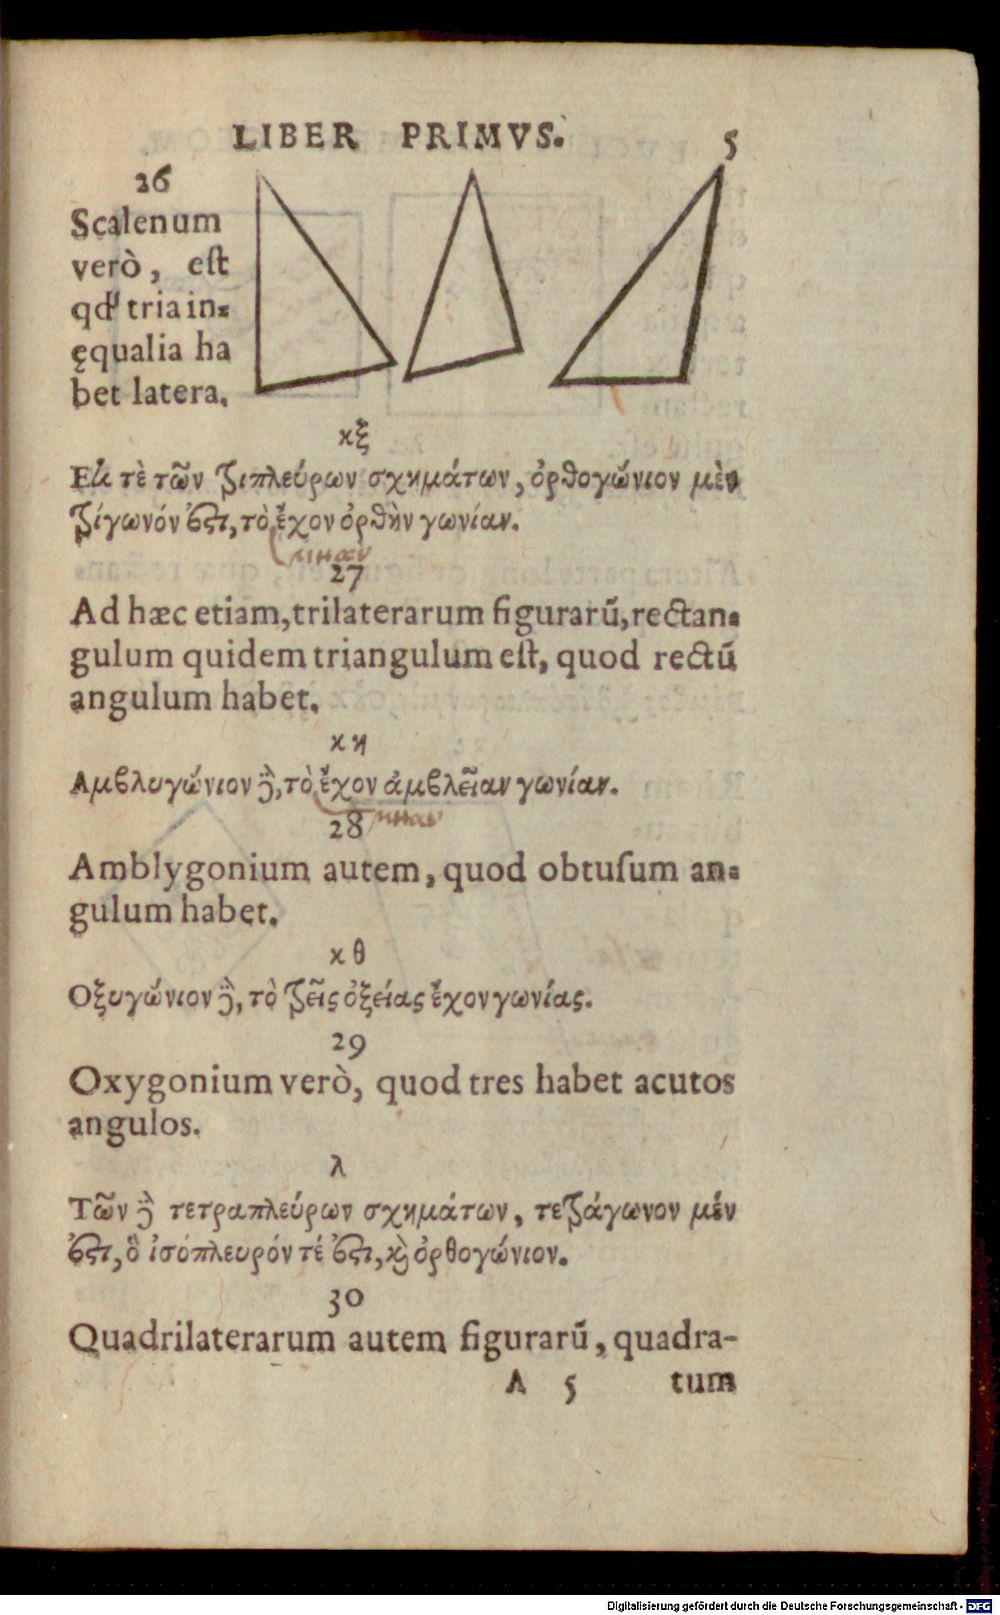 LIBER PRIMVS. 5
26
Scalenum
verò, est
qd' tria in-
ęqualia ha
bet latera.
κξ
Ετι τὲ τῶν τριπλεύρων σχημάτων, ὀρθογώνιον μὲν
τρίγωνόν ἐστι, τὸ ἔχον ὀρθὴν γωνίαν.
μιαν
27
Ad hæc etiam, trilaterarum figurarū, rectan-
gulum quidem triangulum est, quod rectū
angulum habet.
κη
Αμβλυγώνιον δὲ, τὸ ἔχον ἀμβλεῖαν γωνίαν.
28
Amblygonium autem, quod obtusum an-
gulum habet.
κθ
Οξυγώνιον δὲ, τὸ τρεῖς ὀξείας ἔχον γωνίας.
29
Oxygonium verò, quod tres habet acutos
angulos.
λ
Τῶν δὲ τετραπλεύρων σχημάτων, τετράγωνον μέν
ἐστι, ὃ ἰσόπλευρόν τέ ἐστι, καὶ ὀρθογώνιον.
30
Quadrilaterarum autem figurarū, quadra-
A 5 tum
Digitalisierung gefördert durch die Deutsche Forschungsgemeinschaft - DFG